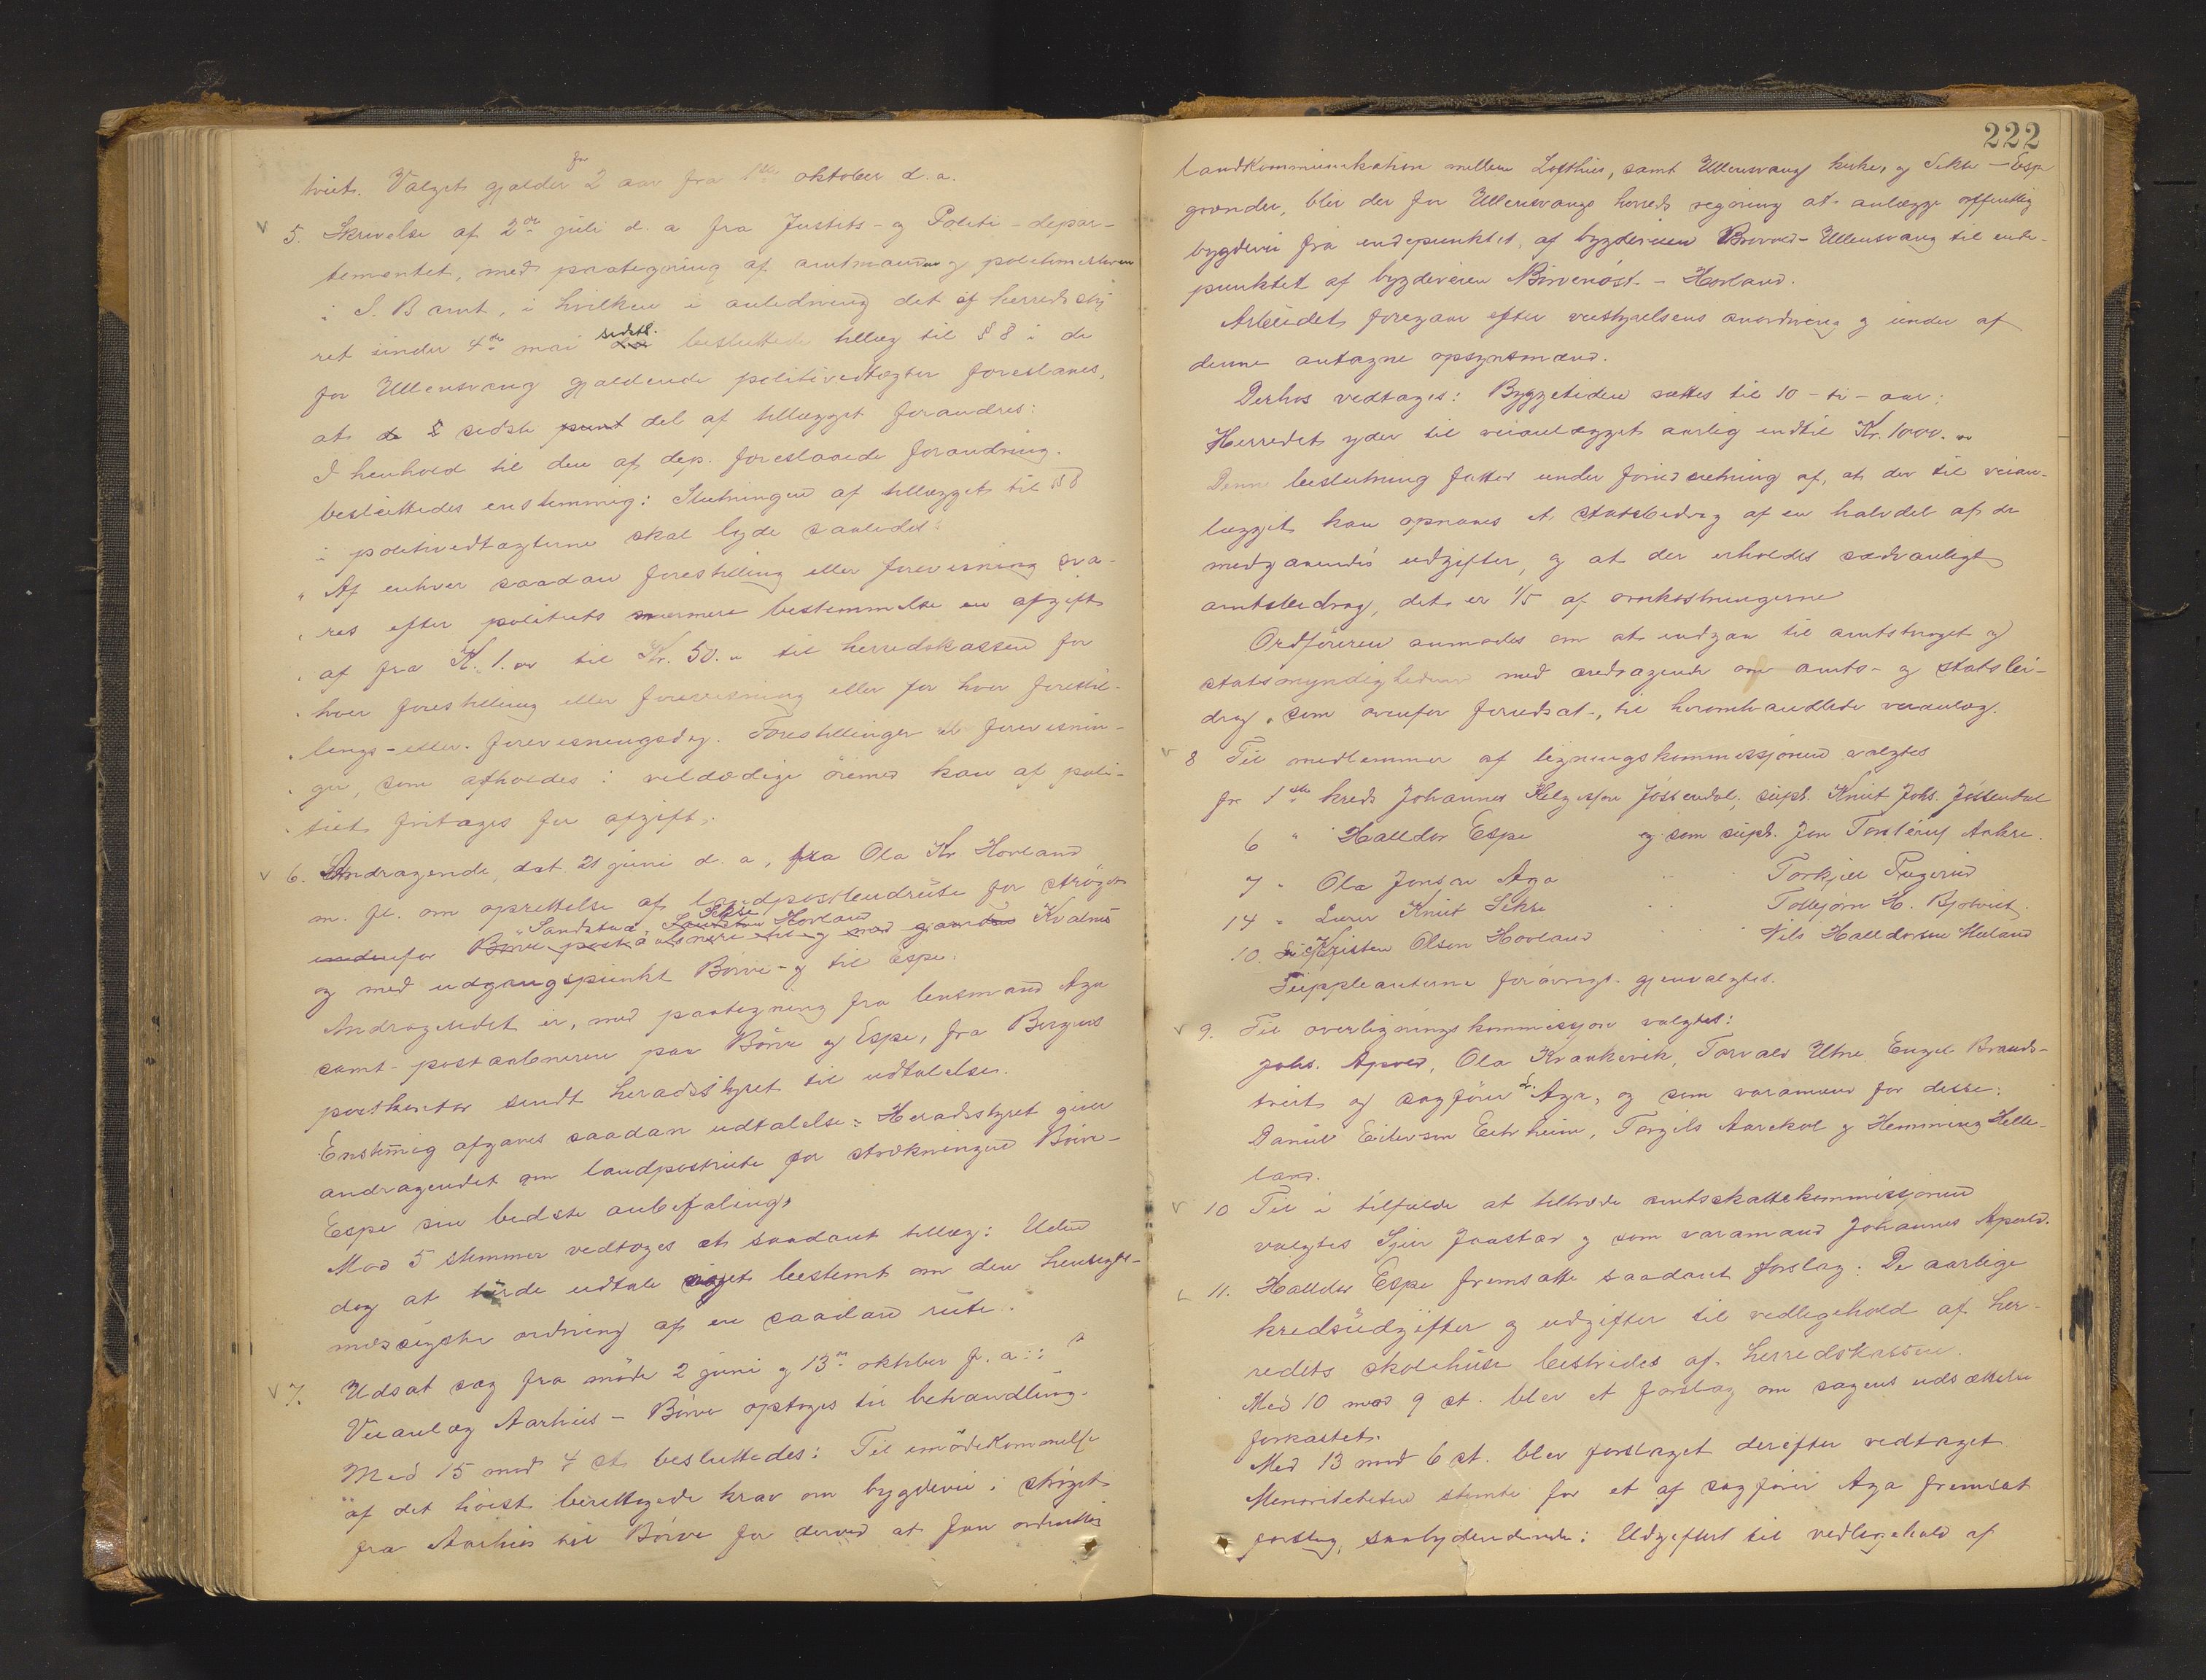 tveit. Valget gjælder for 2 aar fra 1ste oktober d. a.
5. Skrivelse af 2den juli d. a fra Justits- og Politi-depar-
tementet, med paategning af amtmanden og politimesteren
i S. B amt, i hvilken i anledning det af herredssty
ret under 4de mai sidstl. besluttede tillæg til § 8 i de
for Ullensvang gjældende politivedtægter foreslaaes,
at sidste del af tillægget forandres:
I henhold til den af dep. foreslaaede forandring
besluttedes enstemmig: Slutningen af tillægget til § 8
i politivedtægterne skal lyde saaledes:
"Af enhver saadan forestilling eller forevisning sva-
"res efter politiets nærmere bestemmelse en afgift
"af fra Kr. 1.00 til Kr. 50.00 til herredskassen for
"hver forestilling eller forevisning eller for hver forestil-
"lings- eller forevisningsdag. Forestillinger el. forevisnin-
"ger, som afholdes i veldædige öiemed kan af poli-
"tiet fritages for afgift".
6. Andragende, dat 21 juni d. a, fra Ola Kr Hovland
m. fl. om oprettelse af landpostbudrute for ströget
Sandstua, Sekse Hovland Kvalnes
og med udgangspunkt Börve og til Espe.
Andragendet er, med paategning fra lensmand Aga
samt postaabnerne paa Börve og Espe, fra Bergens
postkontor sendt heradsstyret til udtalelse.
Enstemig afgaves saadan udtalelse: Heradsstyret giver
andragendet om landpostrute for strækningen Börve-
Espe sin bedste anbefaling.
Mod 5 stemmer vedtoges et saadant tillæg: Uden
dog at turde udtale noget bestemt om den hensigts-
mæssigste ordning af en saadan rute.
7. Udsat sag fra möde 2 juni og 13de oktober f. a:
Veianlæg Aarhus - Börve optoges til behandling.
Med 15 mod 4 st. besluttedes: Til imödekommelse
af det höist berettigede krav om bygdevei i ströget
fra Aarhus til Börve for derved at faa oprettet
222
landkommunikation mellem Lofthus, samt Ullensvang kirke, og Sekse - Espe
grænder, blir der for Ullensvangs herreds regning at anlægge offentlig
bygdevei fra endepunktet af bygdeveien Brovold - Ullensvang til ende-
punktet af bygdeveien Börvenöst - Hovland.
Arbeidet foregaar efter veistyrelsens anordning og under af
denne antagne opsynsmænd.
Derhos vedtages: Byggetiden sættes til 10 - ti - aar:
Herredet yder til veianlægget aarlig indtil Kr. 1000.00
Denne beslutning fattes under forudsætning af, at der til veian-
lægget kan opnaaes et statsbidrag af en halvdel af de
medgaaende udgifter, og at der erholdes sædvanligt
amtsbidrag, det er 1/5 af omkostningerne
Ordföreren anmodes om at indgaa til amtstinget og
statsmyndighederne med andragende om amts- og statsbi-
drag, som ovenfor forudsat, til heromhandlede veianlæg.
8 Til medlemmer af ligningskommissjonen valgtes
for 1ste kreds Johannes Helgesen Jössendal, supl. Knut Johs. Jössendal
6 " Halldor Espe og som supl. Jon Aakre.
7 " Ola Jonsen Aga " " Torkjel
14 " Lærer Knut Sekse " " Torbjørn H. Bjotveit
10. Kristen Olsen Hovland " " Nils Halldorsen Huland
Suppleanterne forövrigt gjenvalgtes.
9. Til overligningskommissjon valgtes:
Johs. Apold, Ola Kvankvik, Torvald Utne Engel Brands-
tveit og sagförer Aga, og som varamænd for desse:
Daniel Eilevson Eitrheim, Torgils Aarekol og Hemming Helle-
land.
10 Til i tilfælde at tiltræde amtsskattekommissjonen
valgtes Sjur Jaastad og som varamand Johannes Apold.
11. Halldor Espe fremsatte saadant forslag: De aarlige
kredsudgifter og udgifter til vedligehold af her-
redets skolehuse bestrides af herredskassen.
Med 10 mod 9 st. blev et forslag om sagens udsættelse
forkastet.
Med 13 mod 6 st. blev forslaget derefter vedtaget
Menoriteteten stemte for et af sagförer Aga fremsat
forslag, saalydendende: Udgifter til vedligehold af